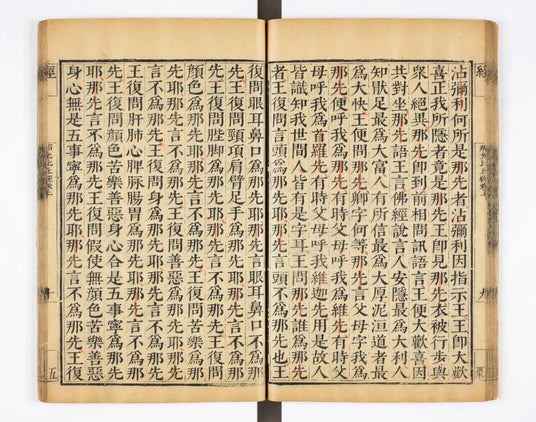 沾彌利何所是那先者沾彌利因指示王王卽大歡
喜正我所隱者竟是那先王卽見那先衣被行步與
衆人絕異那先卽到前相問訊語言王便大歡喜因
共對坐那先語王言佛經說言人安隱最爲大利人
知猒足最爲大富人有所信最爲大厚泥洹道者最
爲大快王便問那先卿字何等那先言父母字我爲
那先便呼我爲那先有時父母呼我爲維先有時父
母呼我爲首羅先有時父母呼我爲維迦先用是故人
皆識知我世間人皆有是字耳王問那先誰爲那先
者王復問言頭爲那先耶那先言頭不爲那先也王
復問眼耳鼻口爲那先耶那先言眼耳鼻口不爲那
先王復問頸項肩臂足手爲那先耶那先言不爲那
先王復問䏶脚爲那先耶那先言不爲那先王復問
顏色爲那先耶那先言不爲那先王復問苦樂爲那
先耶那先言不爲那先王復問善惡爲那先耶那先
言不爲那先王復問身爲那先耶那先言不爲那先
王復問肝肺心脾脈腸胃爲那先耶那先言不爲那
先王復問顏色苦樂善惡身心合是五事寧爲那先
耶那先言不爲那先王復問假使無顏色苦樂善惡
身心無是五事寧爲那先耶那先言不爲那先王復
經
五